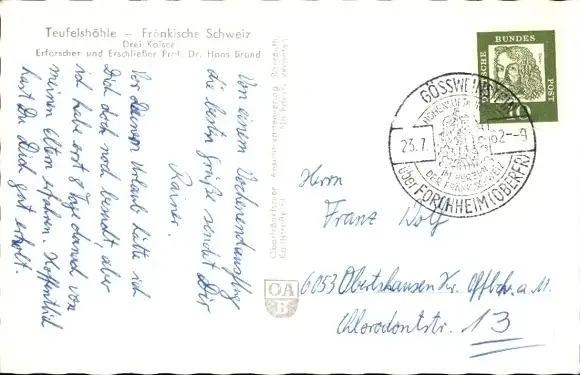 Teufelshöhle – Fränkische Schweiz
Drei Kaiser
Erforscher und Erschließer Prof. Dr. Hans Brand
Von einem Wochenendausflug
die besten Grüße sendet Dir
Rainer.
Vor Deinem Urlaub hätte ich
Dich doch noch besucht, aber
ich habe erst 8 Tage danach von
meinen Eltern erfahren. Hoffentlich
hast Du Dich gut erholt.
Oberfränkischer Ansichtskartenverlag Bayreuth
OA
B
DEUTSCHE BUNDESPOST
10
GÖSSWEINSTEIN
23.7. 62-9
IM HERZEN
DER FRÄNK. SCHWEIZ
über FORCHHEIM (OBERFR)
Herrn
Franz Wolf
6053 Obertshausen Kr. Offbch. a. M.
Chlorodontstr. 13